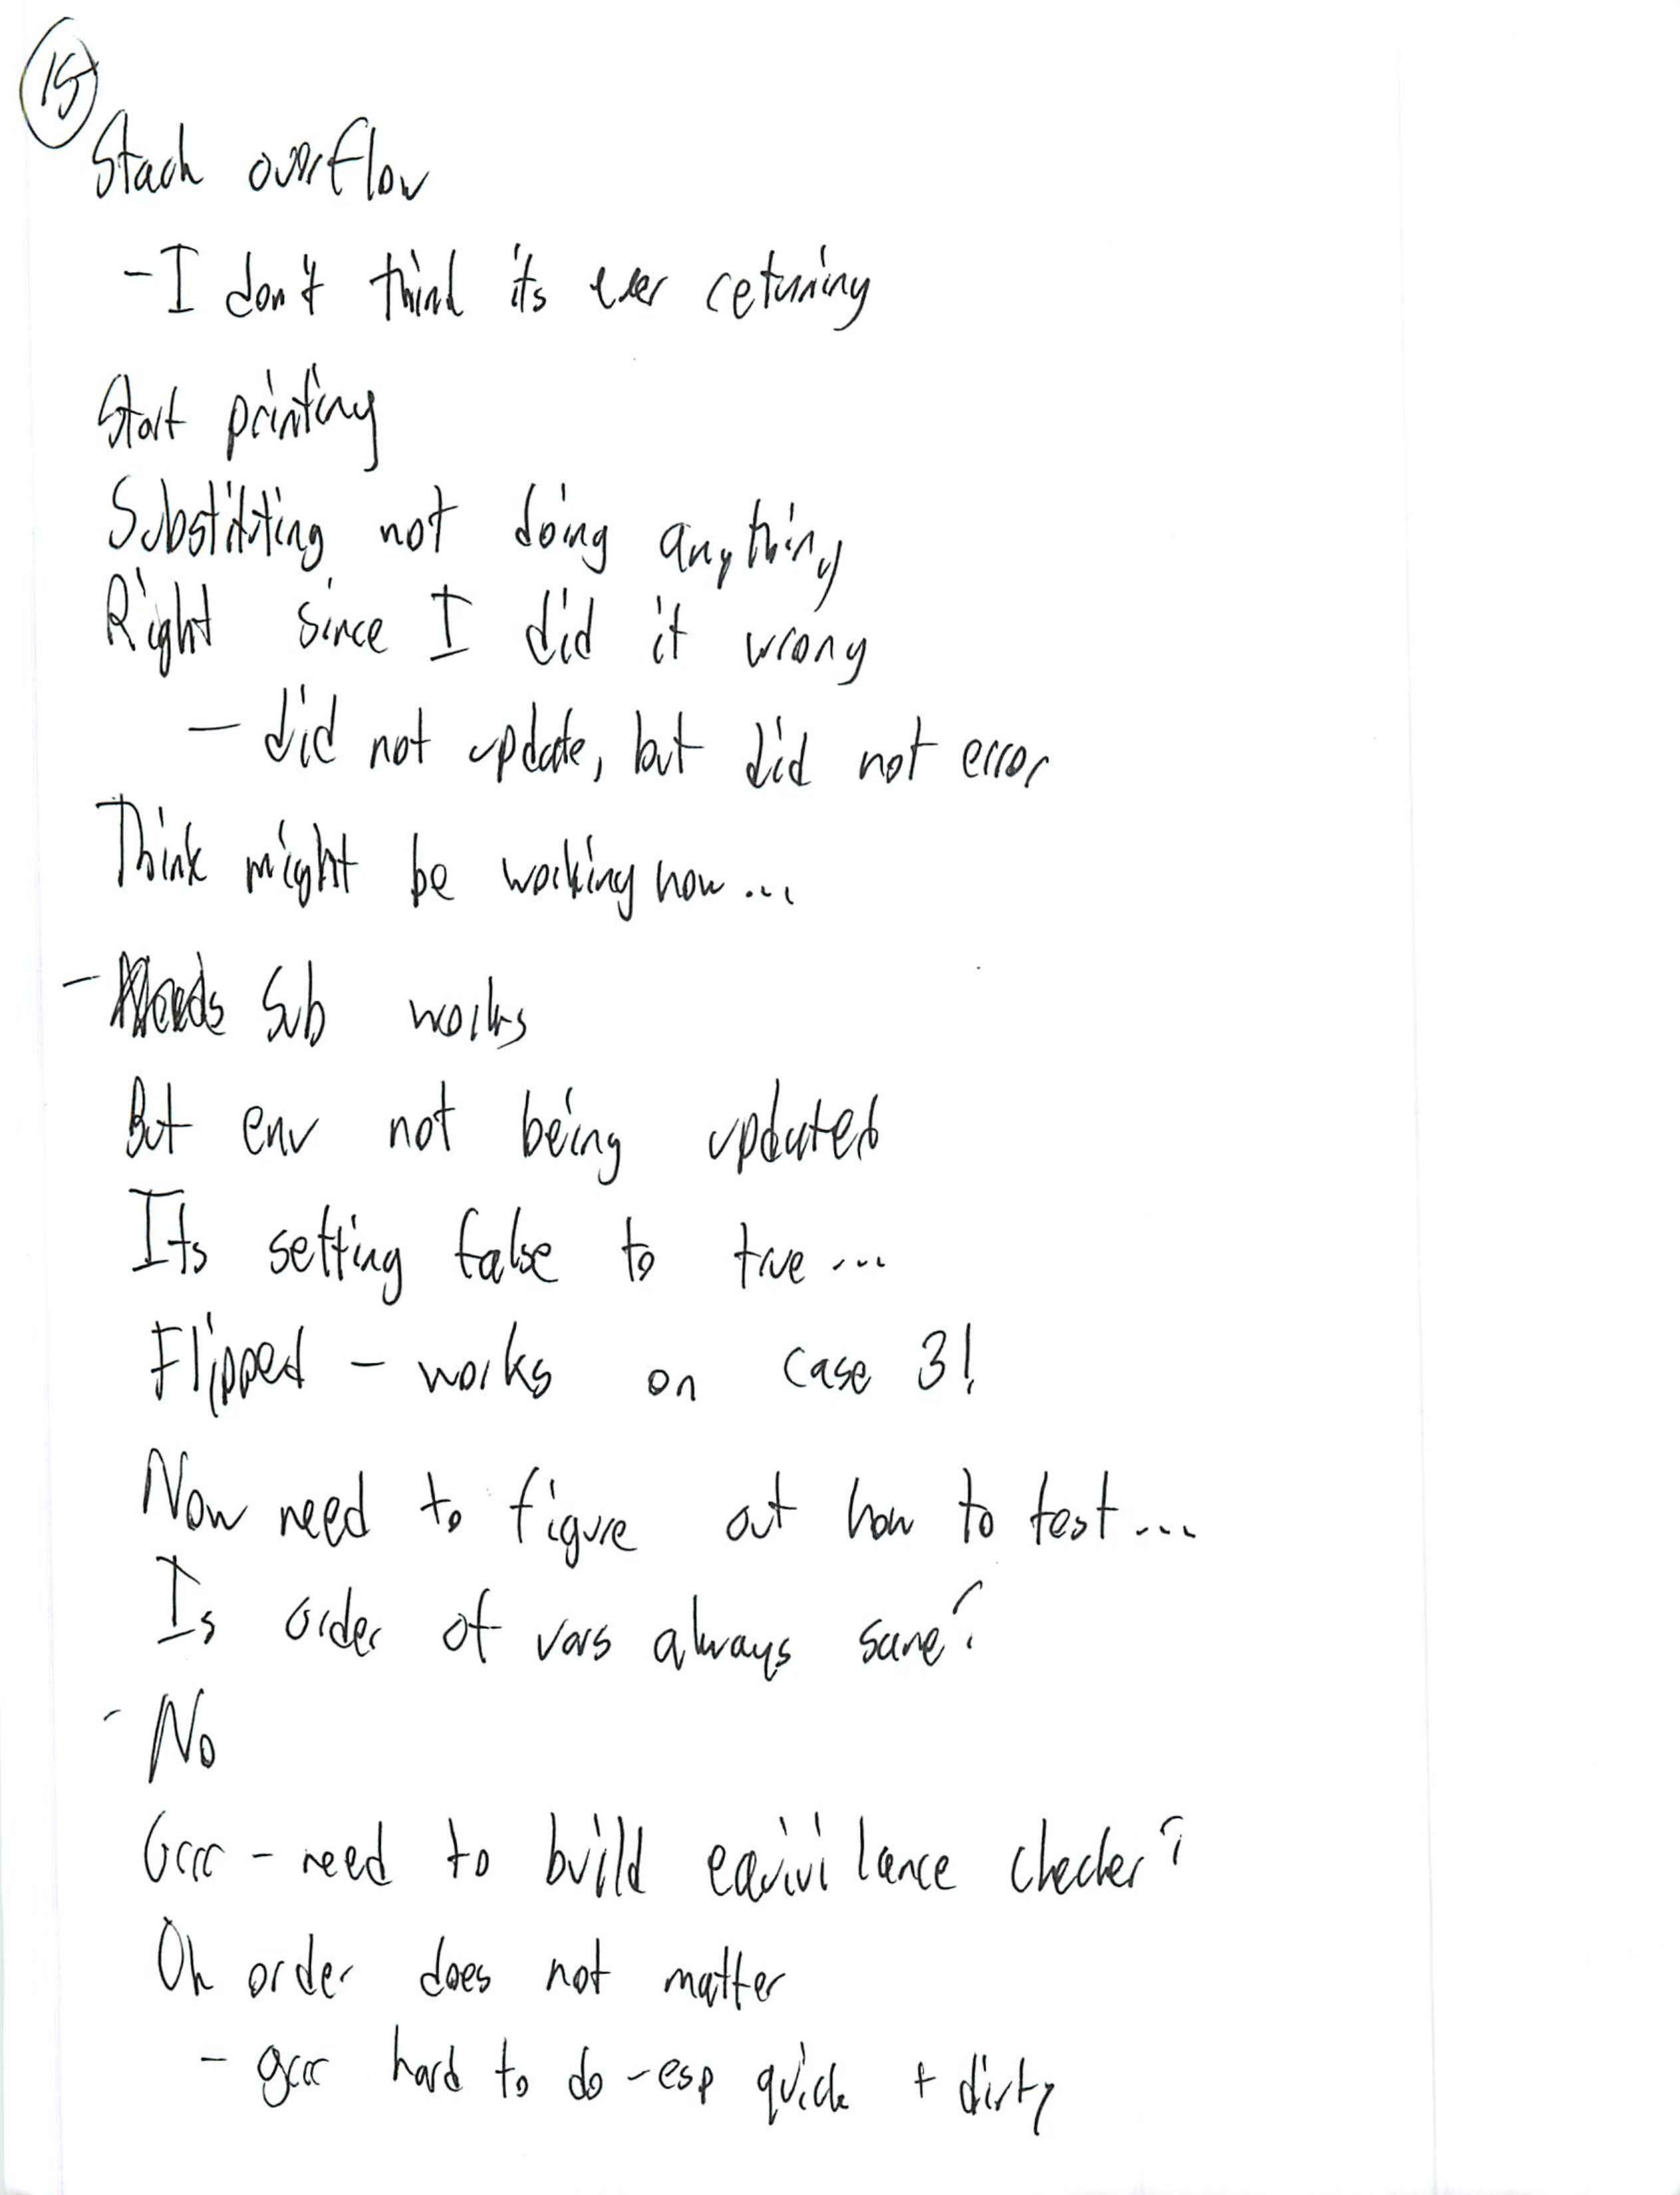 15
Stack overflow
- I don't think its ever returning
Start printing
Substituting not doing anything
Right since I did it wrong
- did not update, but did not error
Think might be working now...
- Sub works
But env not being updated
Its setting false to true...
Flipped - works on case 3!
Now need to figure out how to test...
Is order of vars always same?
- No
Grrr - need to build equivilance checker?
Oh order does not matter
- grrr hard to do - esp quick + dirty